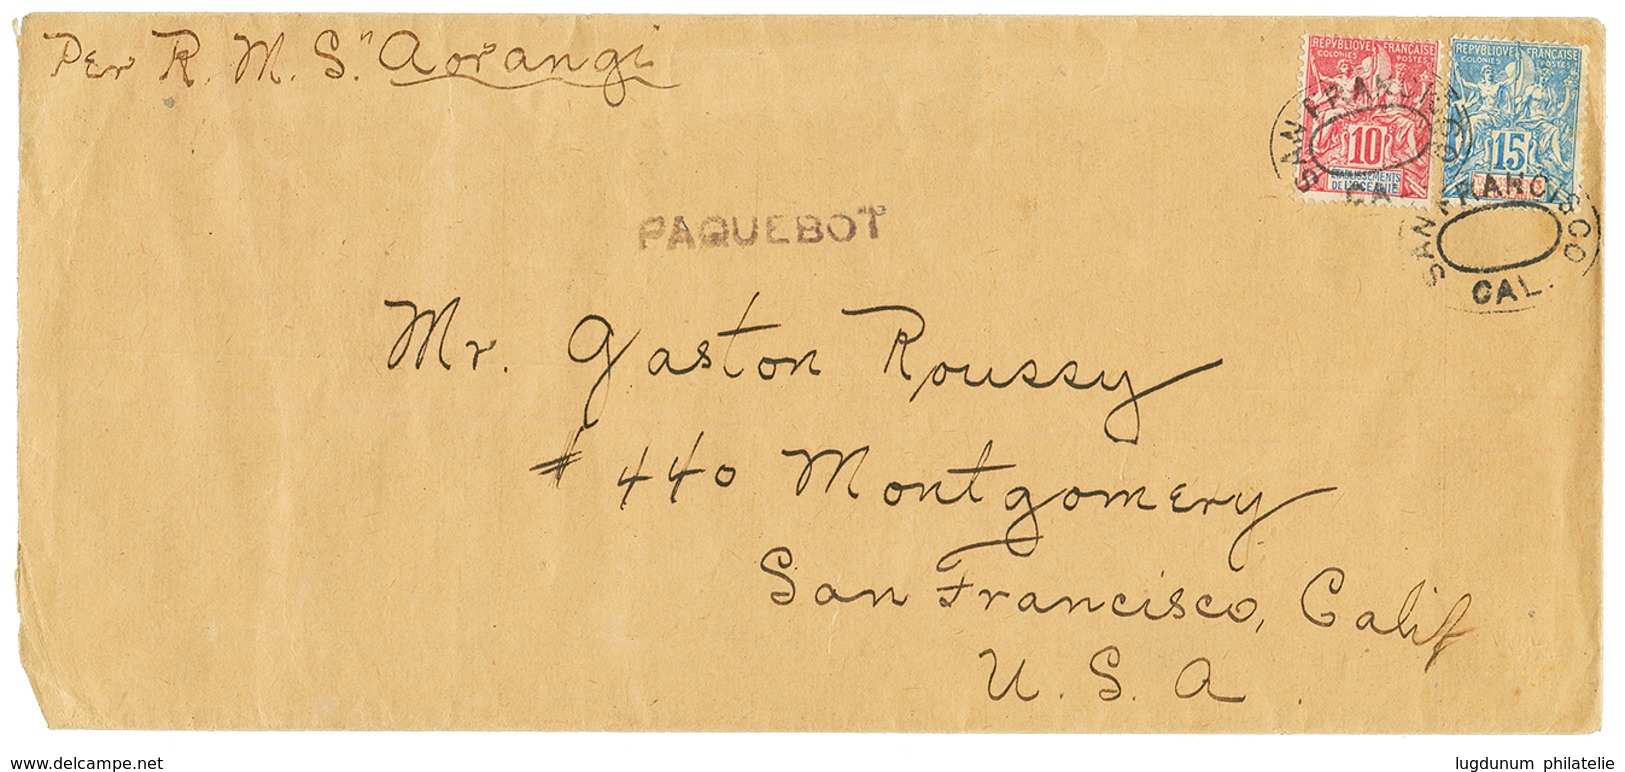 Per R. M. S. "Aorangi
REPVBLIQUE FRANÇAISE
COLONIES POSTES
10
ETABLISSEMENTS
DE L'OCEANIE
REPVBLIQUE FRANÇAISE
COLONIES POSTES
15
SAN FRANCISCO
CA
SAN FRANCISCO
CAL.
PAQUEBOT
Mr. Gaston Roussy
# 440 Montgomery
San Francisco, Calif
U. S. A.
www.delcampe.net
lugdunum philatelie